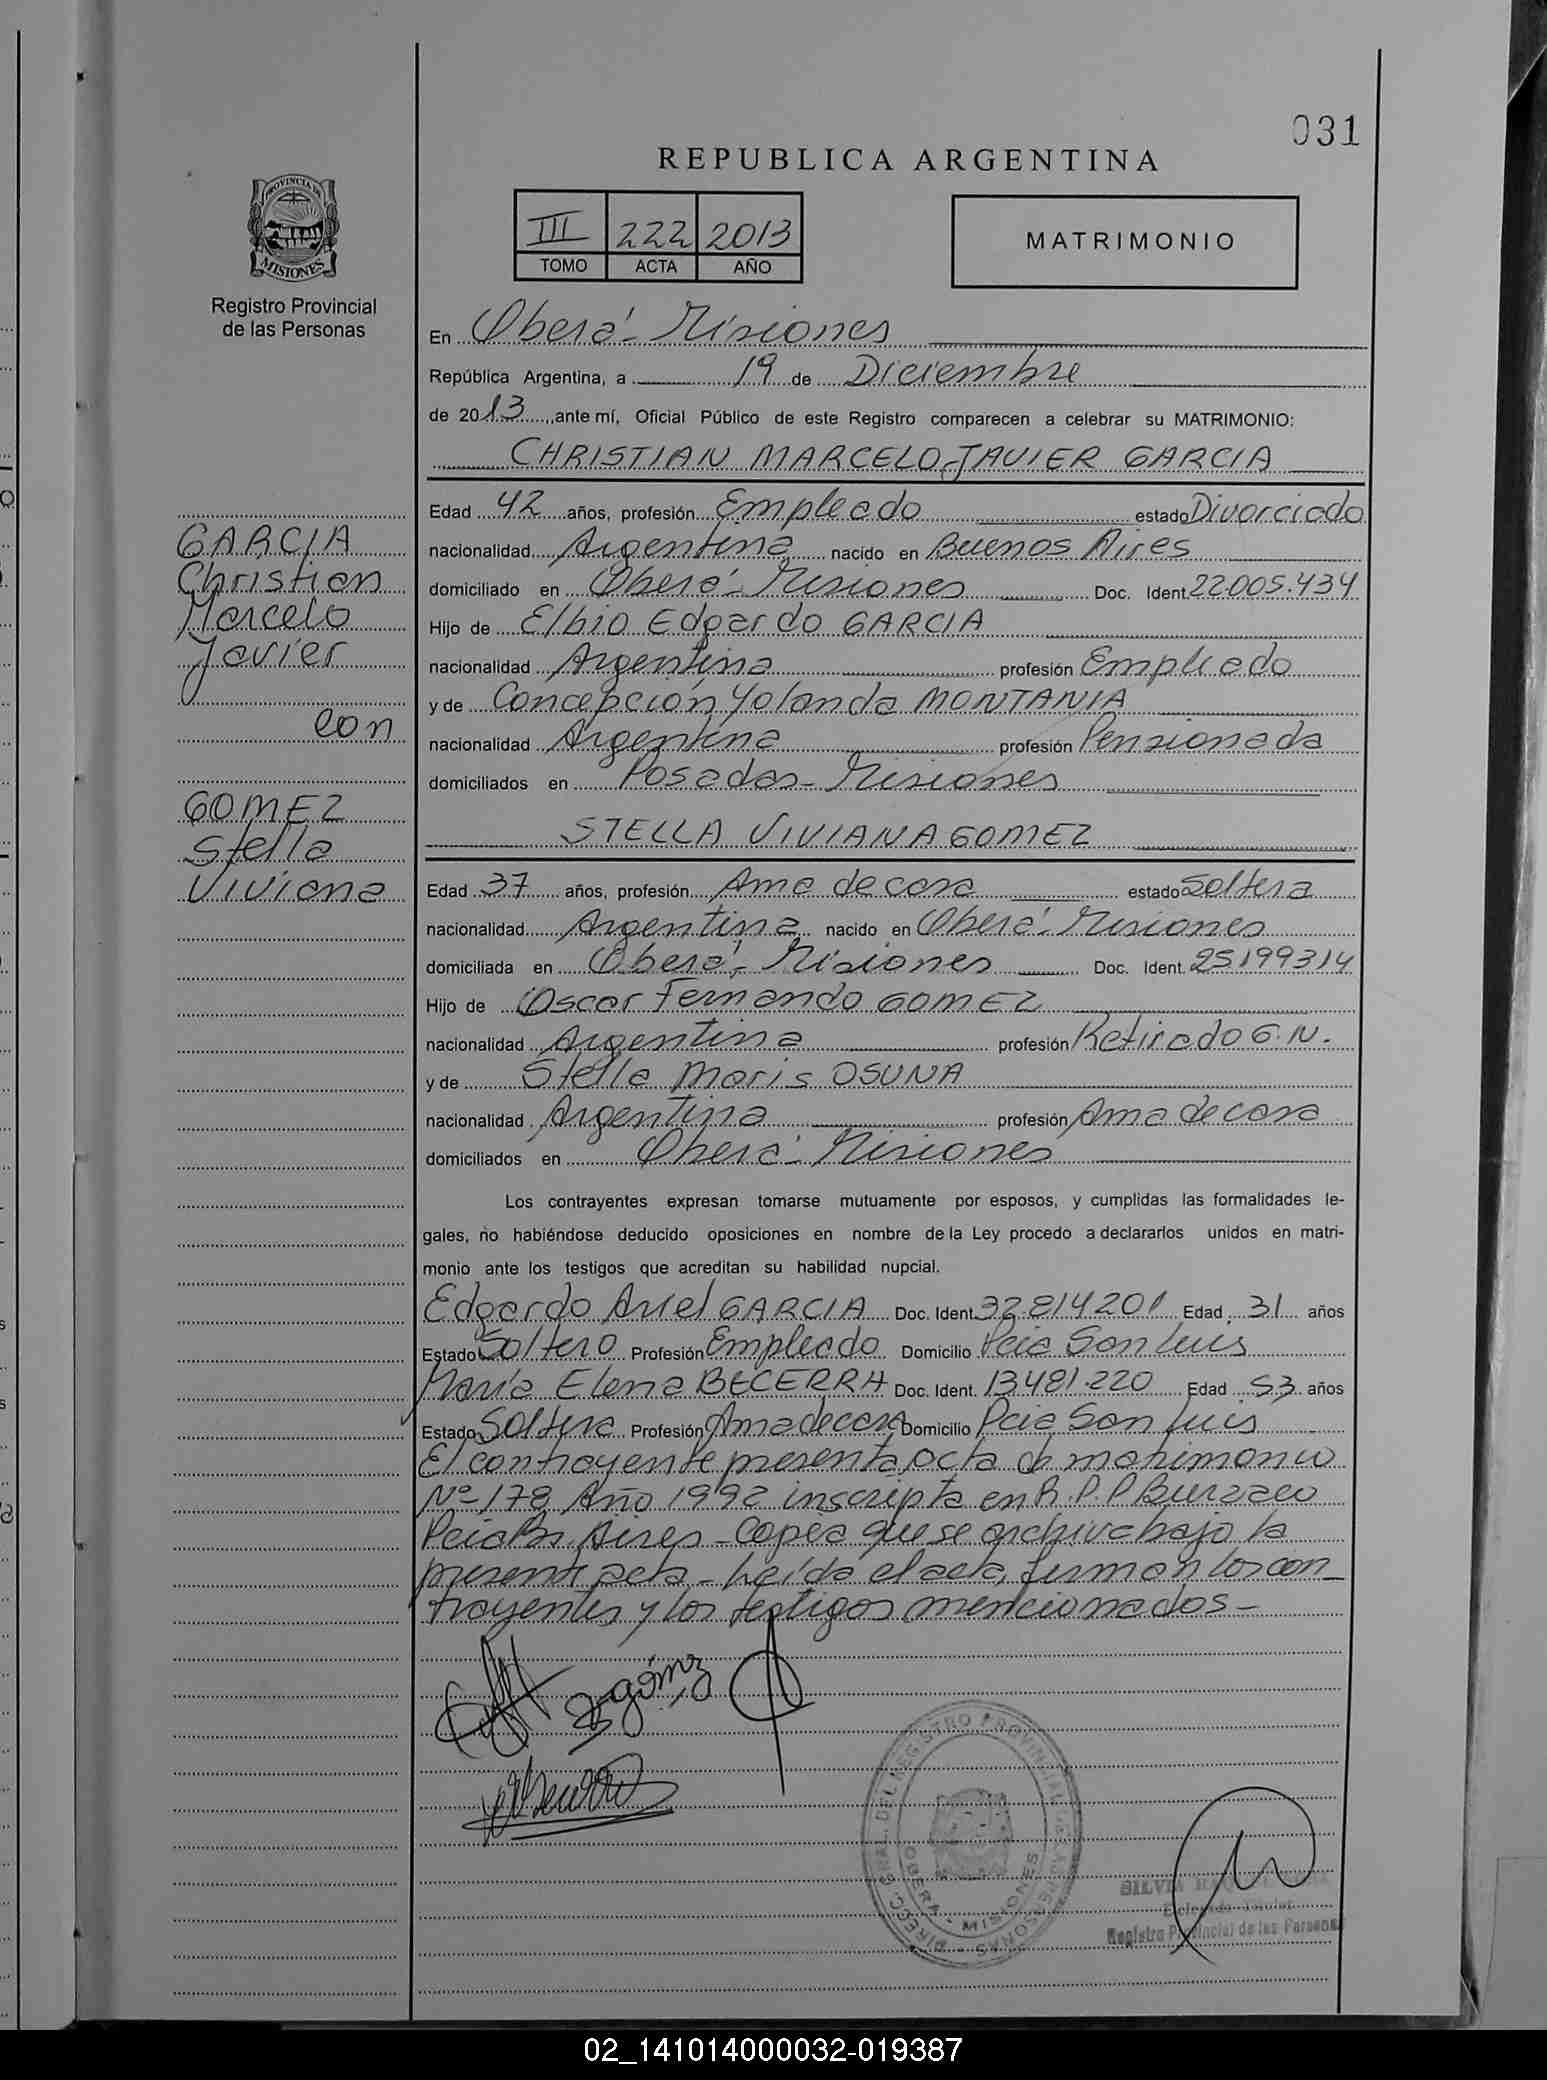 031
REPUBLICA ARGENTINA
III 222 2013
TOMO ACTA AÑO
MATRIMONIO
PROVINCIA DE
MISIONES
Registro Provincial
de las Personas
En Oberá - Misiones
República Argentina, a 19 de Diciembre
de 2013, ante mí, Oficial Público de este Registro comparecen a celebrar su MATRIMONIO:
CHRISTIAN MARCELO JAVIER GARCIA
Edad 42 años, profesión Empleado estado Divorciado
nacionalidad Argentina nacido en Buenos Aires
domiciliado en Oberá - Misiones Doc. Ident. 22005.434
Hijo de Elbio Edgardo GARCIA
nacionalidad Argentina profesión Empleado
y de Concepción Yolanda MONTANIA
nacionalidad Argentina profesión Pensionada
domiciliados en Posadas - Misiones
GARCIA
Christian
Marcelo
Javier
con
GOMEZ
Stella
Viviana
STELLA VIVIANA GOMEZ
Edad 37 años, profesión Ama de casa estado Soltera
nacionalidad Argentina nacido en Oberá - Misiones
domiciliada en Oberá - Misiones Doc. Ident. 25199314
Hijo de Oscar Fernando GOMEZ
nacionalidad Argentina profesión Retirado G.N.
y de Stella Maris OSUNA
nacionalidad Argentina profesión Ama de casa
domiciliados en Oberá - Misiones
Los contrayentes expresan tomarse mutuamente por esposos, y cumplidas las formalidades le-
gales, no habiéndose deducido oposiciones en nombre de la Ley procedo a declararlos unidos en matri-
monio ante los testigos que acreditan su habilidad nupcial.
Edgardo Ariel GARCIA Doc. Ident. 32.814201 Edad 31 años
Estado Soltero Profesión Empleado Domicilio Pcia San Luis
María Elena BECERRA Doc. Ident. 13481.220 Edad 53 años
Estado Soltera Profesión Ama de casa Domicilio Pcia San Luis
El contrayente presenta acta de matrimonio
Nº 178 Año 1992 inscripta en R.P.P Burzaco
Pcia Bs. Aires - Copia que se archiva bajo la
presente acta - Leída el acta, firman los con-
trayentes y los testigos mencionados -
Gómez
DIRECC. GRAL. DEL REGISTRO PROVINCIAL DE LAS PERSONAS
OBERA - MISIONES
SILVIA
Delegada Titular
Registro Provincial de las Personas
02_141014000032-019387